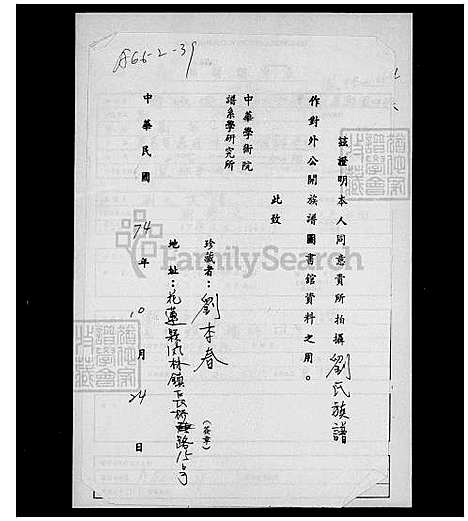 A66-2-39
茲證明本人同意貴所拍攝劉氏族譜
作對外公開族譜圖書館資料之用。
此致
中華學術院
譜系學研究所
珍藏者：劉李春
(簽章)
地址：花蓮縣鳳林鎮長橋路15号
中華民國74年10月24日
FamilySearch